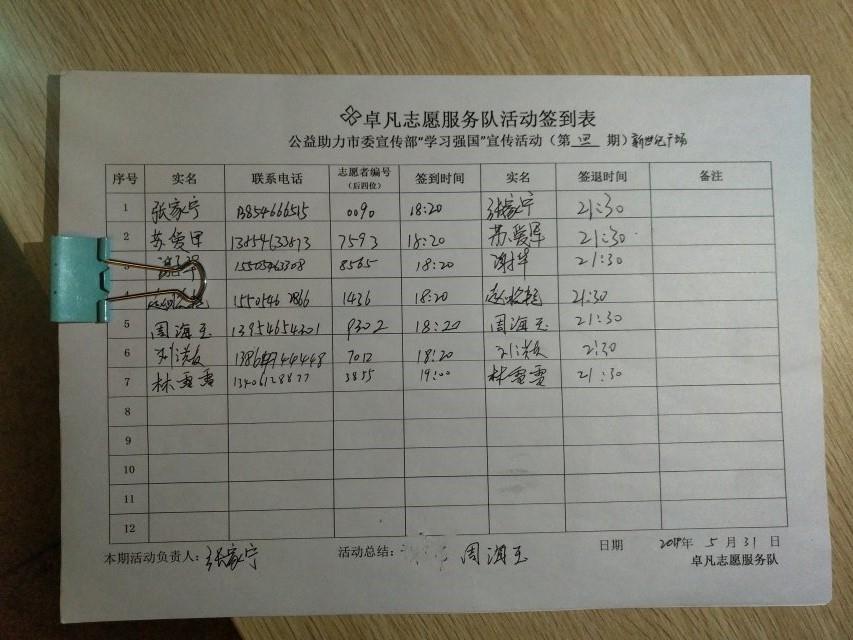 卓凡志愿服务队活动签到表
公益助力市委宣传部“学习强国”宣传活动（第 四 期）新世纪广场
序号 实名 联系电话 志愿者编号（后四位） 签到时间 实名 签退时间 备注
1 张家宁 13854666515 0090 18:20 张家宁 21:30
2 苏爱军 13854633873 7593 18:20 苏爱军 21:30
3 8565 18:20 21:30
4 1436 18:20 21:30
5 周海玉 13954654301 9302 18:20 周海玉 21:30
6 7012 18:20 21:30
7 林雪雪 13406128877 3855 19:00 林雪雪 21:30
8
9
10
11
12
本期活动负责人：张家宁 活动总结： 周海玉 日期 2019年 5 月 31 日
卓凡志愿服务队